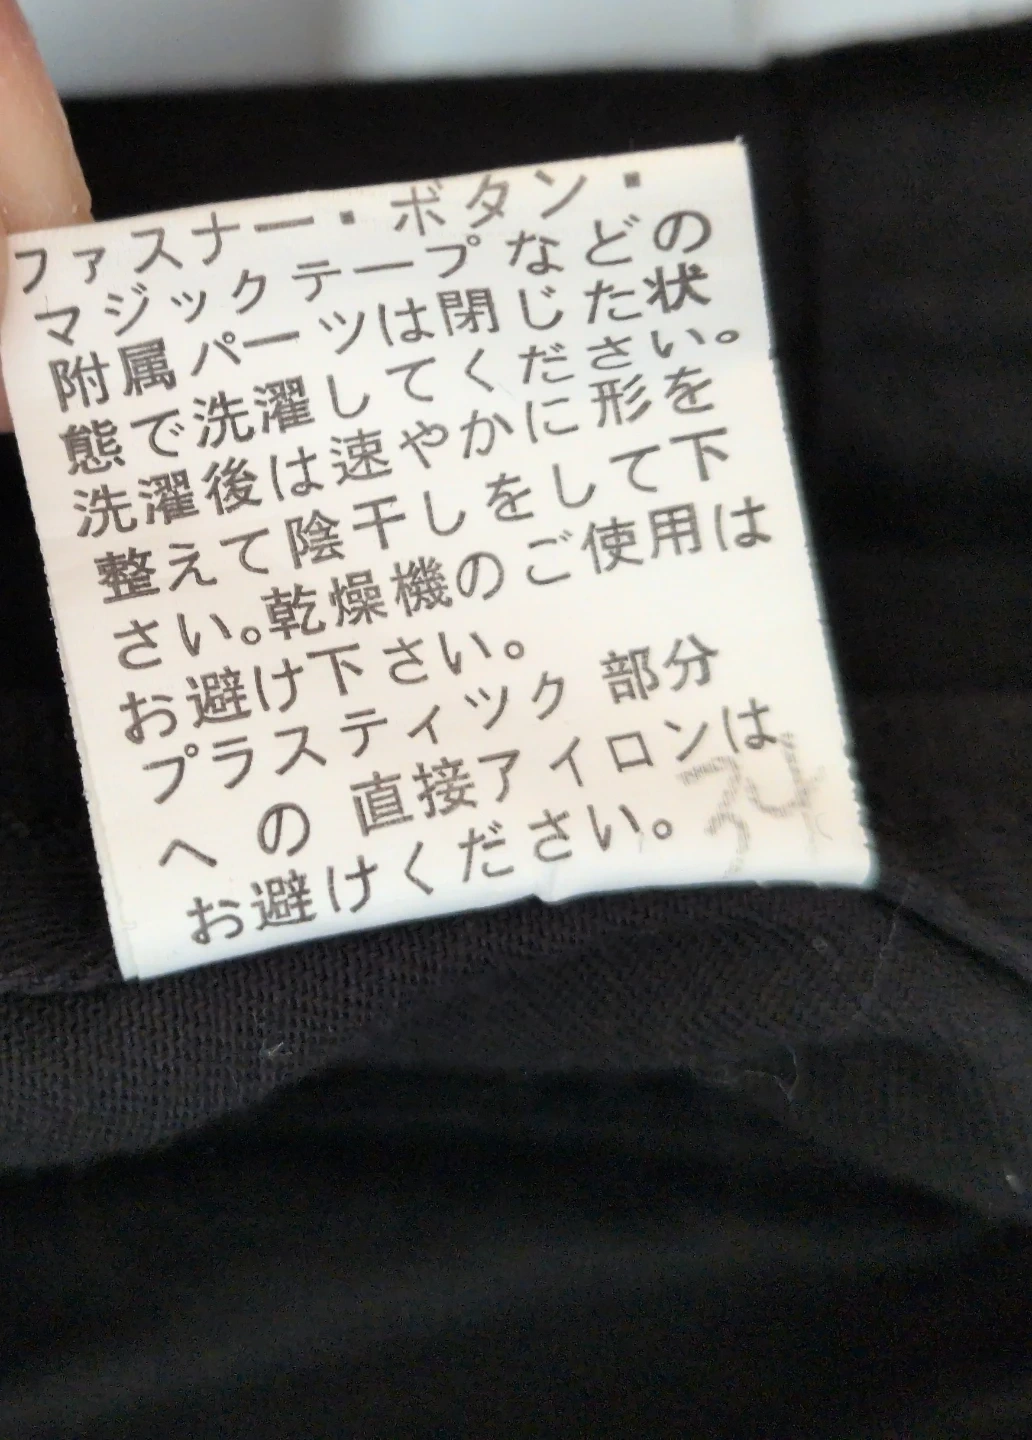 ファスナー・ボタン・
マジックテープなどの
附属パーツは閉じた状
態で洗濯してください。
洗濯後は速やかに形を
整えて陰干しをして下
さい。乾燥機のご使用は
お避け下さい。
プラスティック 部分
への 直接アイロンは
お避けください。
34